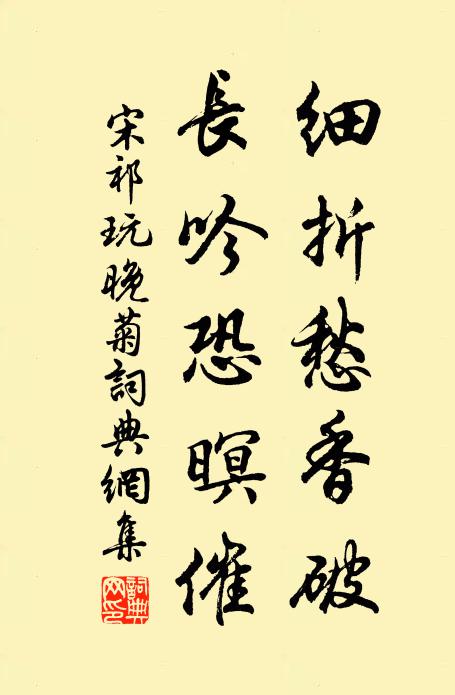 細折愁香破
長吟恐暝催
宋祁玩晚菊詞典網集
詞典網印